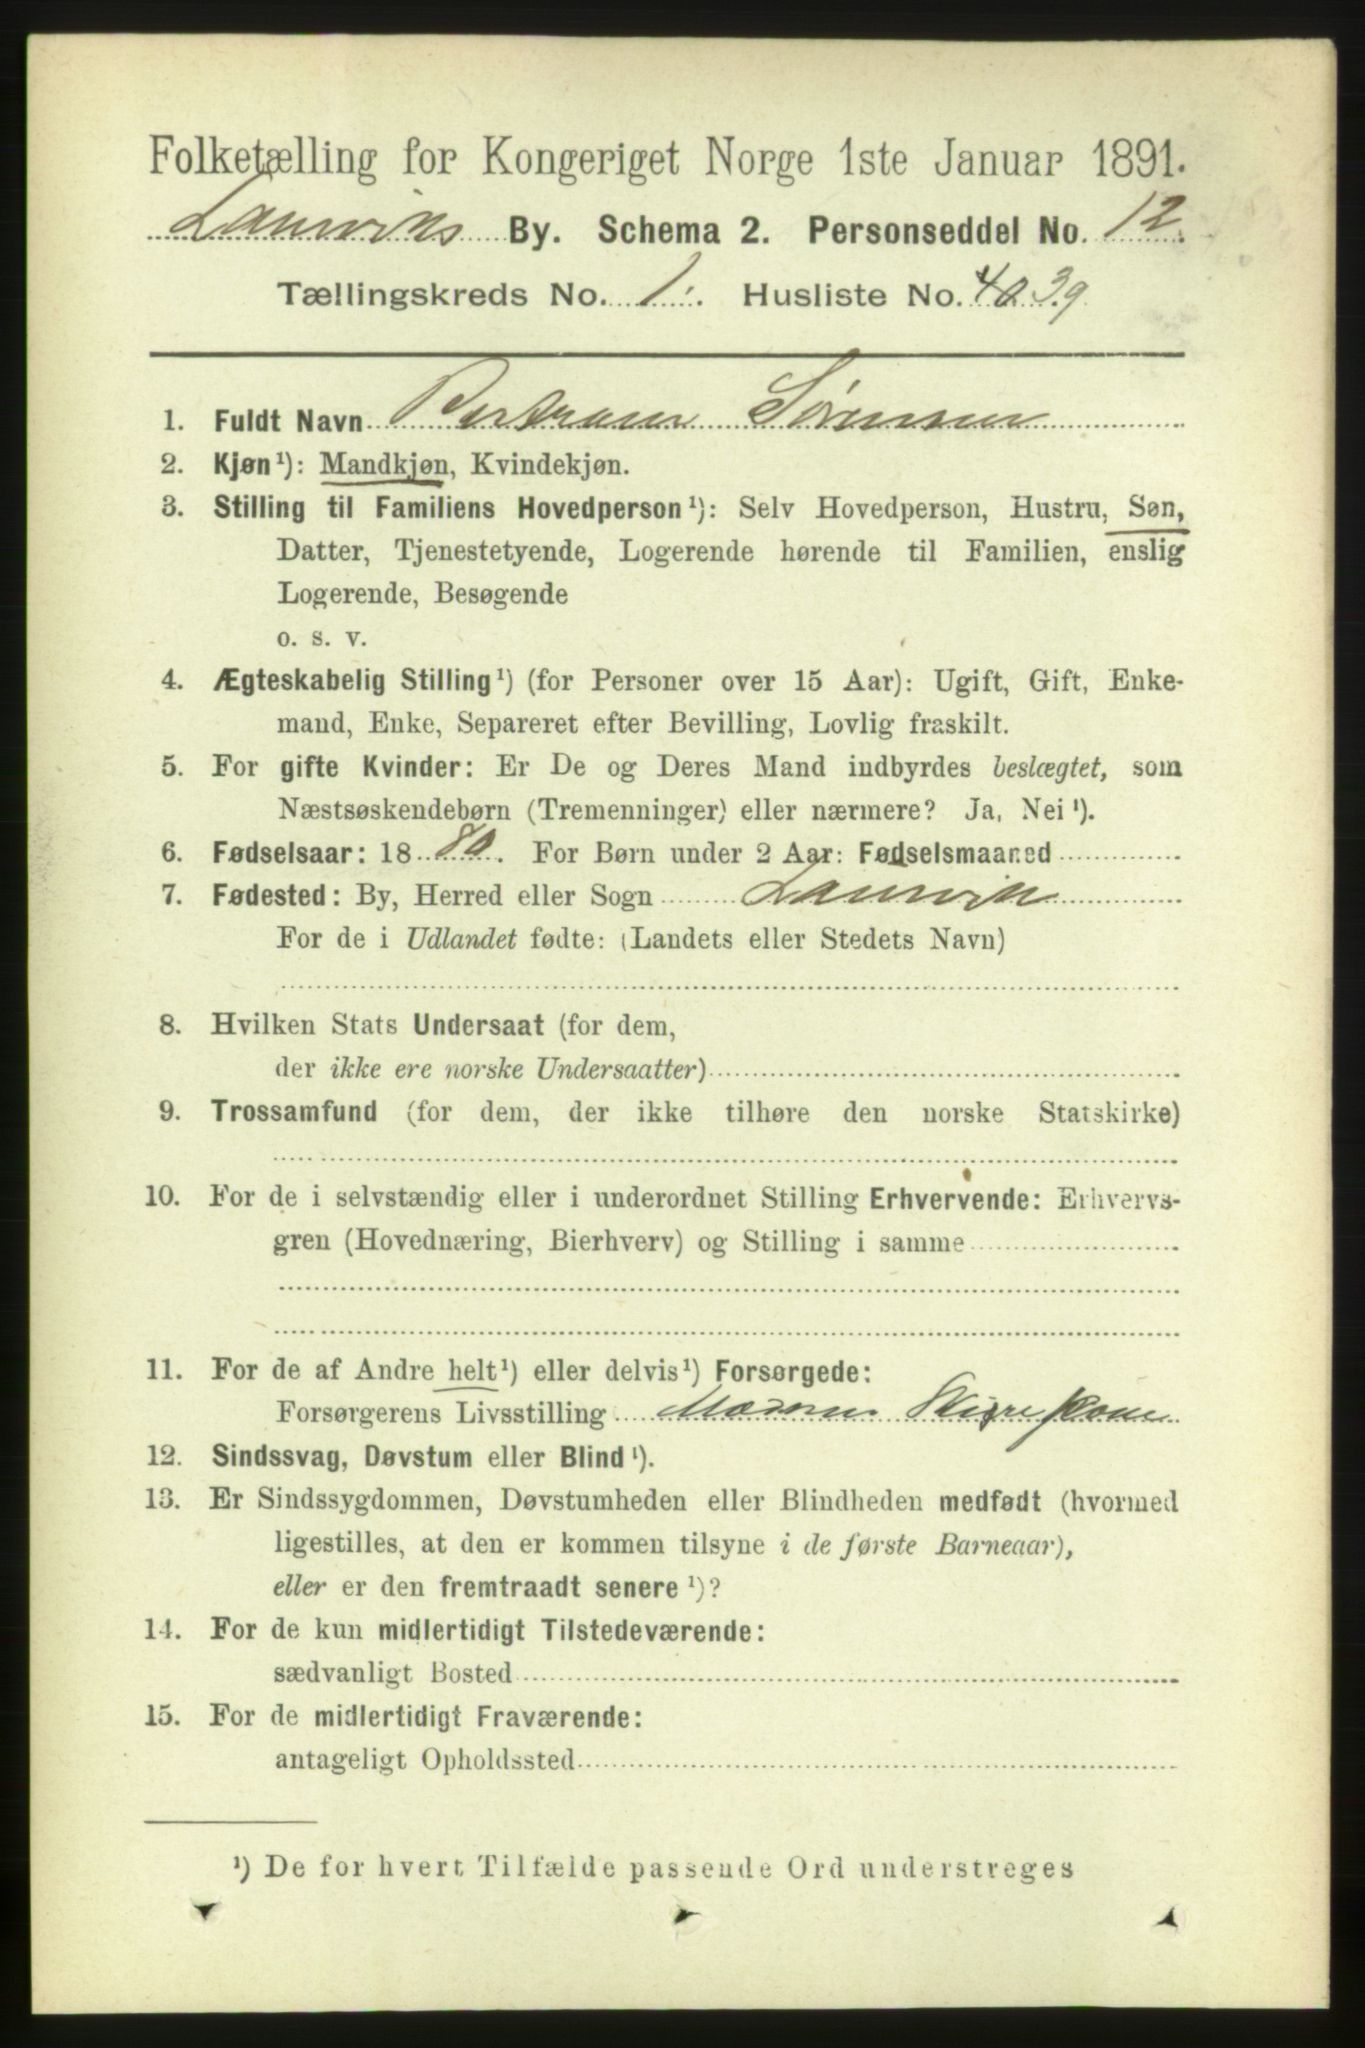 Folketælling for Kongeriget Norge 1ste Januar 1891.
Laurviks By. Schema 2. Personseddel No. 12
Tællingskreds No. 1. Husliste No. 40 39
1. Fuldt Navn Bertram Sørensen
2. Kjøn¹): Mandkjøn, Kvindekjøn.
3. Stilling til Familiens Hovedperson¹): Selv Hovedperson, Hustru, Søn,
Datter, Tjenestetyende, Logerende hørende til Familien, enslig
Logerende, Besøgende
o. s. v.
4. Ægteskabelig Stilling¹) (for Personer over 15 Aar): Ugift, Gift, Enke-
mand, Enke, Separeret efter Bevilling, Lovlig fraskilt.
5. For gifte Kvinder: Er De og Deres Mand indbyrdes beslægtet, som
Næstsøskendebørn (Tremenninger) eller nærmere? Ja, Nei¹).
6. Fødselsaar: 1880. For Børn under 2 Aar: Fødselsmaaned
7. Fødested: By, Herred eller Sogn Laurvik
For de i Udlandet fødte: (Landets eller Stedets Navn)
8. Hvilken Stats Undersaat (for dem,
der ikke ere norske Undersaatter)
9. Trossamfund (for dem, der ikke tilhøre den norske Statskirke)
10. For de i selvstændig eller i underordnet Stilling Erhvervende: Erhvervs-
gren (Hovednæring, Bierhverv) og Stilling i samme
11. For de af Andre helt¹) eller delvis¹) Forsørgede:
Forsørgerens Livsstilling Moderen
12. Sindssvag, Døvstum eller Blind¹).
13. Er Sindssygdommen, Døvstumheden eller Blindheden medfødt (hvormed
ligestilles, at den er kommen tilsyne i de første Barneaar),
eller er den fremtraadt senere¹)?
14. For de kun midlertidigt Tilstedeværende:
sædvanligt Bosted
15. For de midlertidigt Fraværende:
antageligt Opholdssted
¹) De for hvert Tilfælde passende Ord understreges